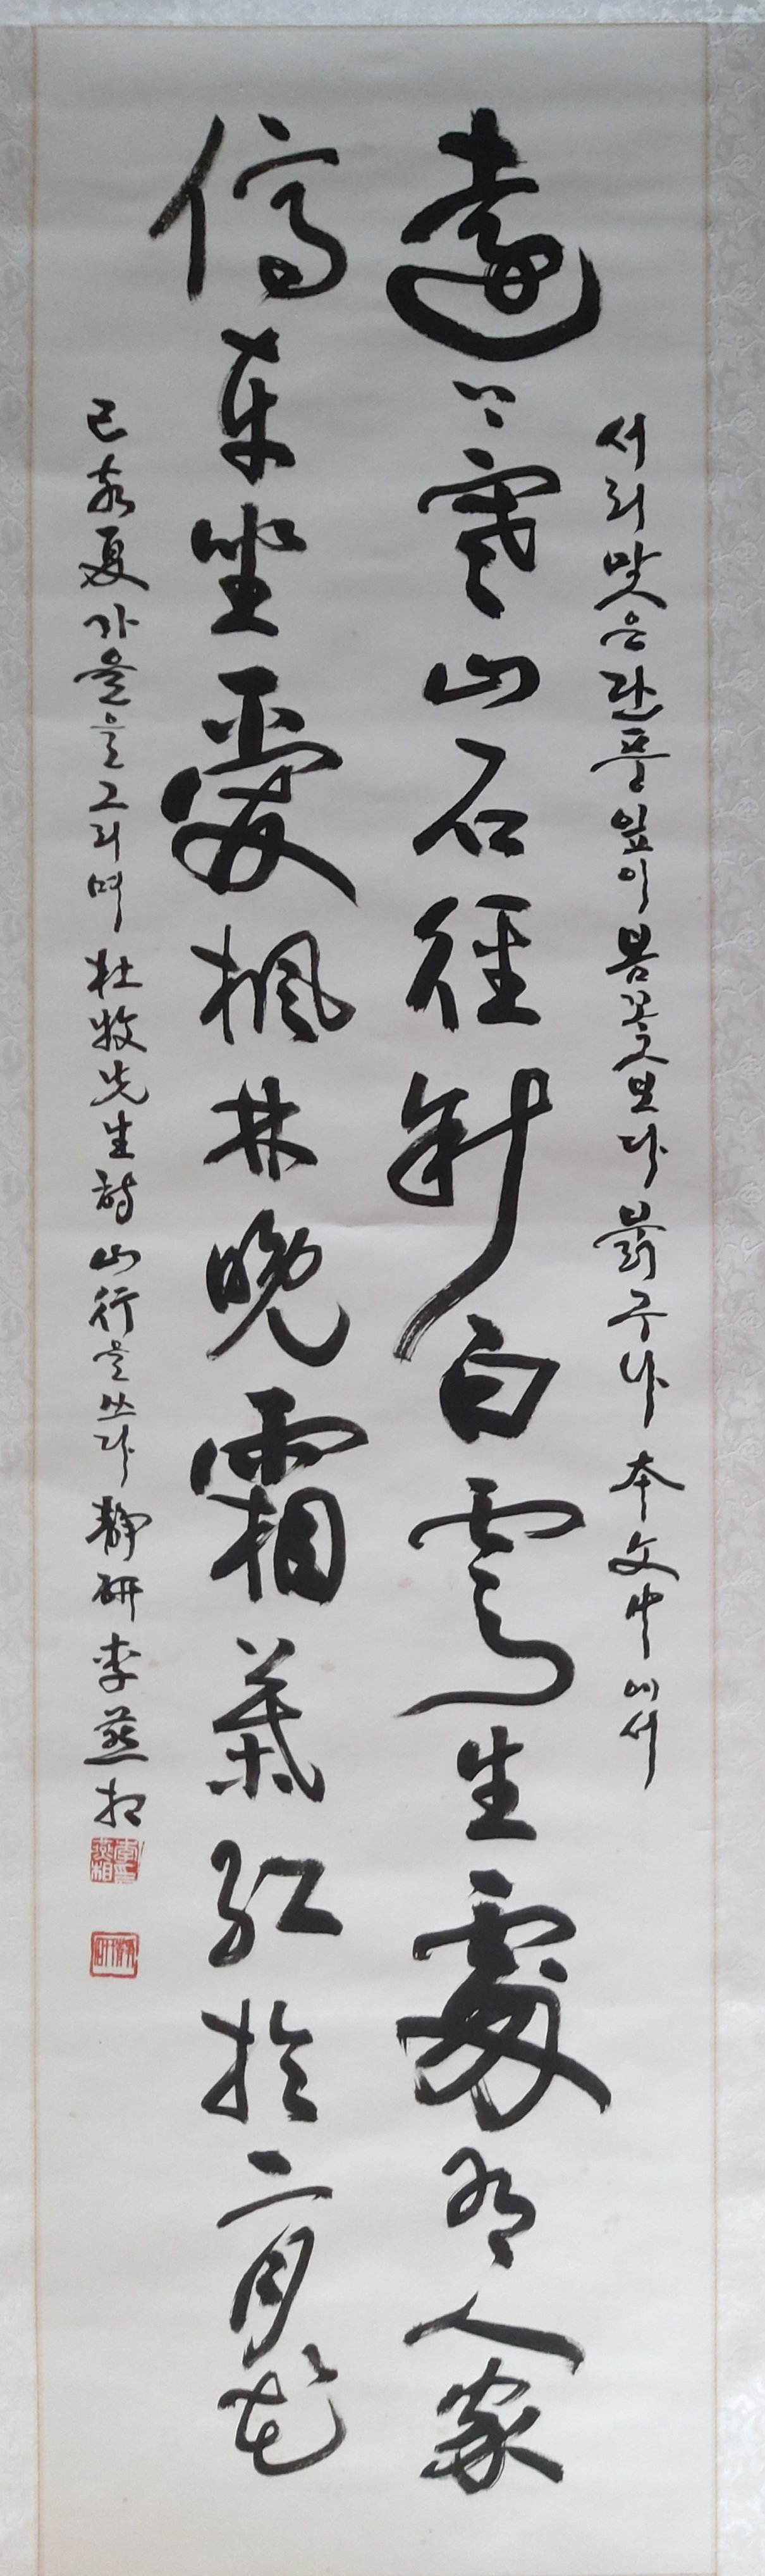 서리맞은 단풍잎이 봄꽃보다 붉구나 本文中에서
遠上寒山石徑斜白雲生處有人家
停車坐愛楓林晚霜葉紅於二月花
己亥夏 가을을 그리며 杜牧先生詩 山行을 쓰다 靜研 李燕相